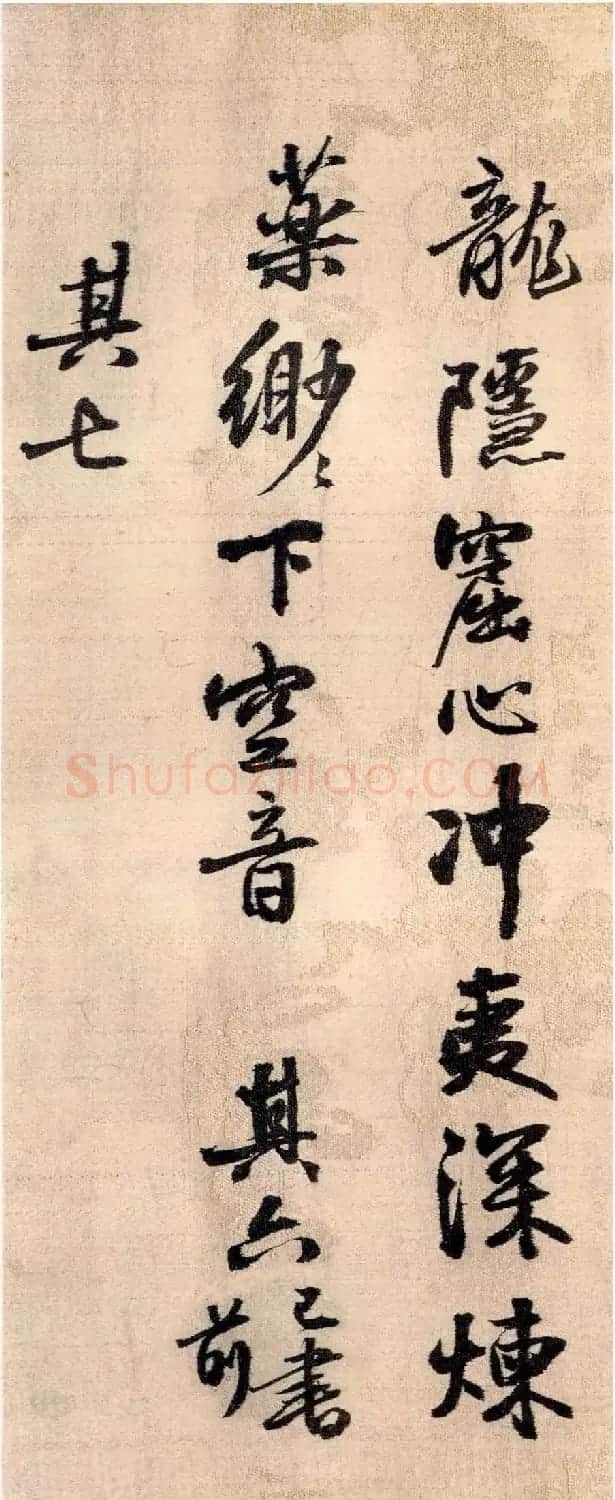 龍隱窟心冲夷深煉
藥緲〻下空音 其六 已書
前
其七
Shufaziliao.COM